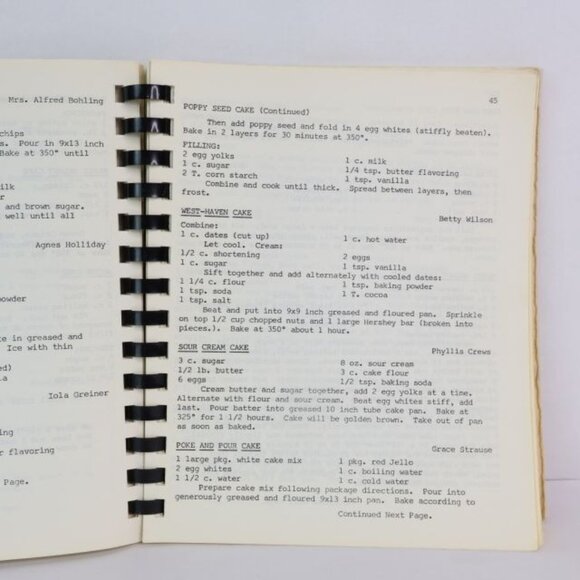 Mrs. Alfred Bohling
chips
s. Pour in 9x13 inch
Bake at 350° until
lk
ar
and brown sugar.
well until all
Agnes Holliday
powder
e in greased and
Ice with thin
ed)
a
Iola Greiner
ng
r flavoring
Page.
45
POPPY SEED CAKE (Continued)
Then add poppy seed and fold in 4 egg whites (stiffly beaten).
Bake in 2 layers for 30 minutes at 350°.
FILLING:
2 egg yolks 1 c. milk
1 c. sugar 1/4 tsp. butter flavoring
2 T. corn starch 1 tsp. vanilla
Combine and cook until thick. Spread between layers, then
frost.
WEST-HAVEN CAKE Betty Wilson
Combine:
1 c. dates (cut up) 1 c. hot water
Let cool. Cream:
1/2 c. shortening 2 eggs
1 c. sugar 1 tsp. vanilla
Sift together and add alternately with cooled dates:
1 1/4 c. flour 1 tsp. baking powder
1 tsp. soda 1 T. cocoa
1 tsp. salt
Beat and put into 9x9 inch greased and floured pan. Sprinkle
on top 1/2 cup chopped nuts and 1 large Hershey bar (broken into
pieces.). Bake at 350° about 1 hour.
SOUR CREAM CAKE Phyllis Crews
3 c. sugar 8 oz. sour cream
1/2 lb. butter 3 c. cake flour
6 eggs 1/2 tsp. baking soda
Cream butter and sugar together, add 2 egg yolks at a time.
Alternate with flour and sour cream. Beat egg whites stiff, add
last. Pour batter into greased 10 inch tube cake pan. Bake at
325° for 1 1/2 hours. Cake will be golden brown. Take out of pan
as soon as baked.
POKE AND POUR CAKE Grace Strause
1 large pkg. white cake mix 1 pkg. red Jello
2 egg whites 1 c. boiling water
1 1/2 c. water 1 c. cold water
Prepare cake mix following package directions. Pour into
generously greased and floured 9x13 inch pan. Bake according to
Continued Next Page.